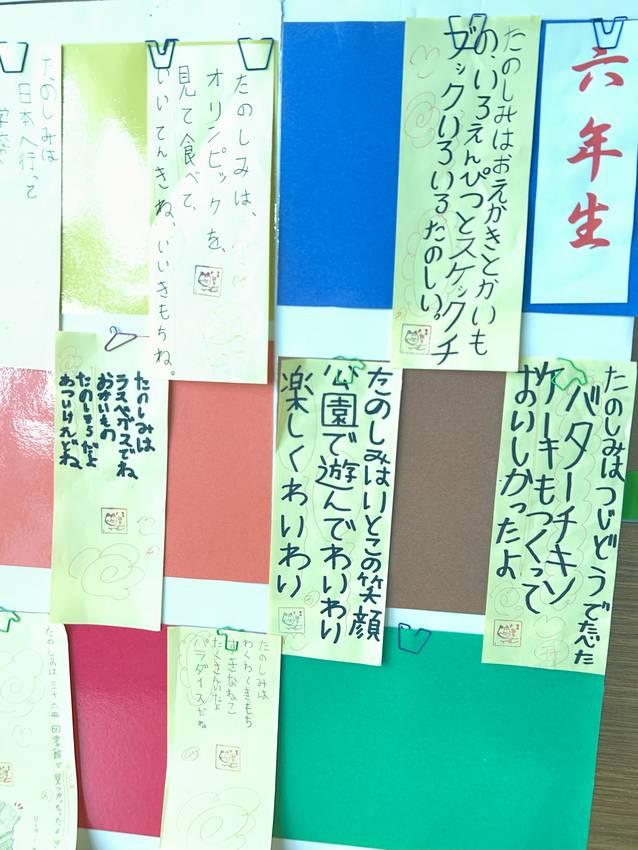 六年生
たのしみはおえかきとかいも
の、いろえんぴつとスケックチ
ブックいろいろたのしい。
たのしみは、
オリンピックを、
見て食べて、
いいてんきね、いいきもちね。
たのしみは
日本へ行って
たのしみはつじどうでたべた
バターチキン
ケーキもつくって
おいしかったよ
たのしみはいとこの笑顔
公園で遊んでわいわい
楽しくわいわい
たのしみは
ラスベガスでね
おかいもの
たのしそうだよ
あついけれどね
たのしみは
わくわくきもち
たくさんだよ
パラダイスだね
たのしみは三十六冊図書館で見つかったよ